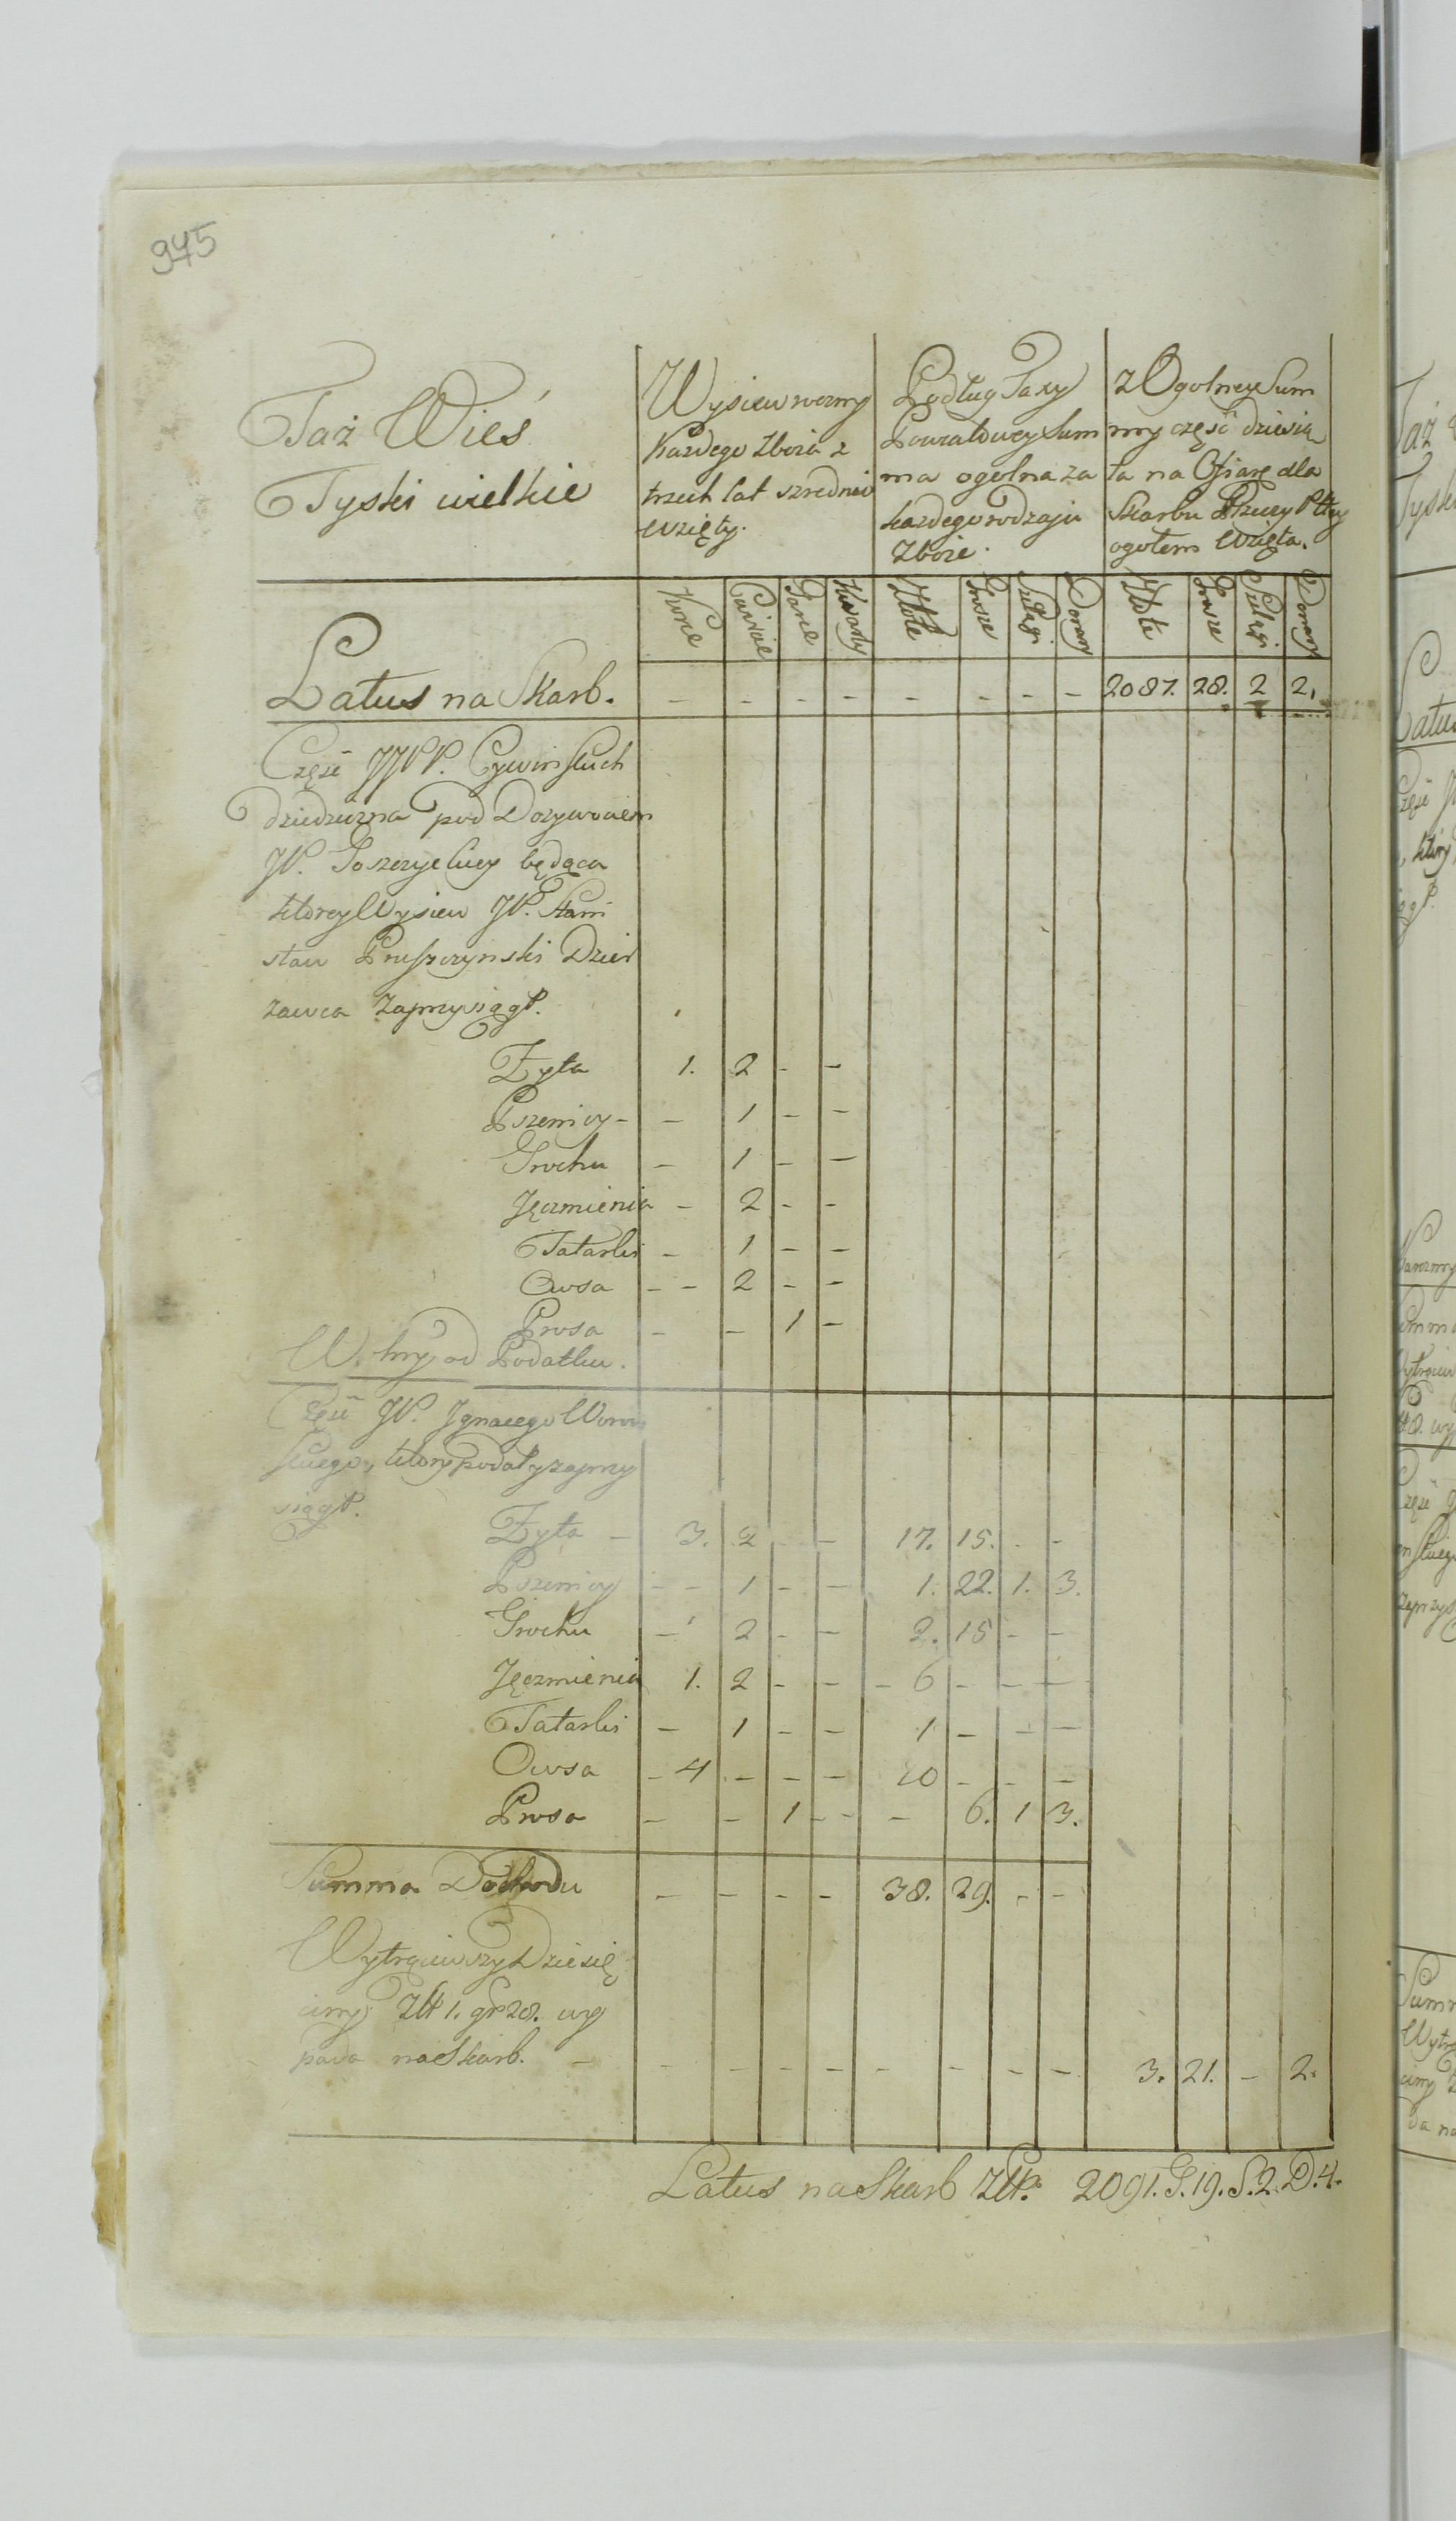 975
Taż Wieś
Tyski wielkie
Wysiew roczny
każdego zboża z
trzech lat szrednio
wzięty.
Podług Taxy
Powiatowey Sum
ma ogolna za
każdego rodzaju
Zboże.
z Ogolney Sum
my część dziesią
ta na Ofiarę dla
Skarbu Rzeczy Pttey
ogołem Wzięta.
Korce Cwierci Garce Kwarty Złote Grosze Szelągi Denary Złote Grosze Szelągi Denary
Latus na Skarb. - - - - - - - - 2087. 28. 2 2,
Część JJPP. Cywinskich
dziedziczna pod Dożywociem
JP. będąca
ktorey Wysiew JP. Stani
sław Pruszczynski Dzier
żawca zaprzysiągł.
Żyta 1. 2 - -
Pszenicy - - 1 - -
Grochu - 1 - -
Jęczmienia - 2 - -
Tatarki - 1 - -
Owsa - - 2 - -
Prosa - - 1 -
Wolny od Podatku.
Część JP. Ignacego
skiego, ktory podał y zaprzy
siągł.
Żyta - 3. 2 - - 17. 15. - -
Pszenicy - - 1 - - 1. 22. 1. 3.
Grochu - 2 - - 2. 15 - -
Jęczmienia 1. 2 - - - 6 - - -
Tatarki - 1 - - 1 - - -
Owsa - 4 - - - 10 - - -
Prosa - - 1 - - - 6. 1 3.
Summa Dochodu - - - - 38. 29. - -
Wytrąciwszy Dziesię
ciny Złł 1. gr 28. wy
pada na Skarb. - - - - - - - - - 3. 21. - 2.
Latus na Skarb Złł. 2091. G. 19. S. 2. D. 4.
Taż
Tysk
Latus